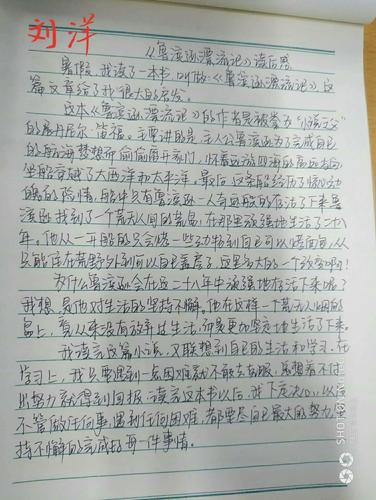 刘洋
《鲁滨逊漂流记》读后感
暑假,我读了一本书,叫做《鲁滨逊漂流记》,这
篇文章给了我很大的启发。
这本《鲁滨逊漂流记》的作者是被拳为"小说之父"
的丹尼尔·笛福。主要讲的是:主人公鲁滨逊为了完成自己
的航海梦想而偷偷离开家门,怀着远游四海的高远志向,
坐船穿越了大西洋和太平洋。最后,这条船经历了惊心动
魄的险情,船中只有鲁滨逊一人奇迹般的存活了下来。鲁
滨逊找到了一个荒无人间的荒岛,在那里顽强地生活了二十八
年。他从一开始的只会烧一些动物到自己可以烤面包,从
只能住在荒野外到可以自己盖房子,这是多大的一个改变啊!
为什么鲁滨逊会在这二十八年中顽强地存活下来呢?
我想,是他对生活的坚持不懈。他在这样一个荒无人烟的
岛上,看从来没有放弃过生活,而是更加坚定地生活了下来。
我读完这篇小说,又联想到自己的生活和学习。在
学习上,我只要遇到一点困难就不敢去克服,总想着不付
出努力就得到回报。读完这本书以后,我下定决心,以后
不管做任何事,遇到任何困难,都要尽自己最大的努力,坚
持不懈的完成好每一件事情。
SHOT ON